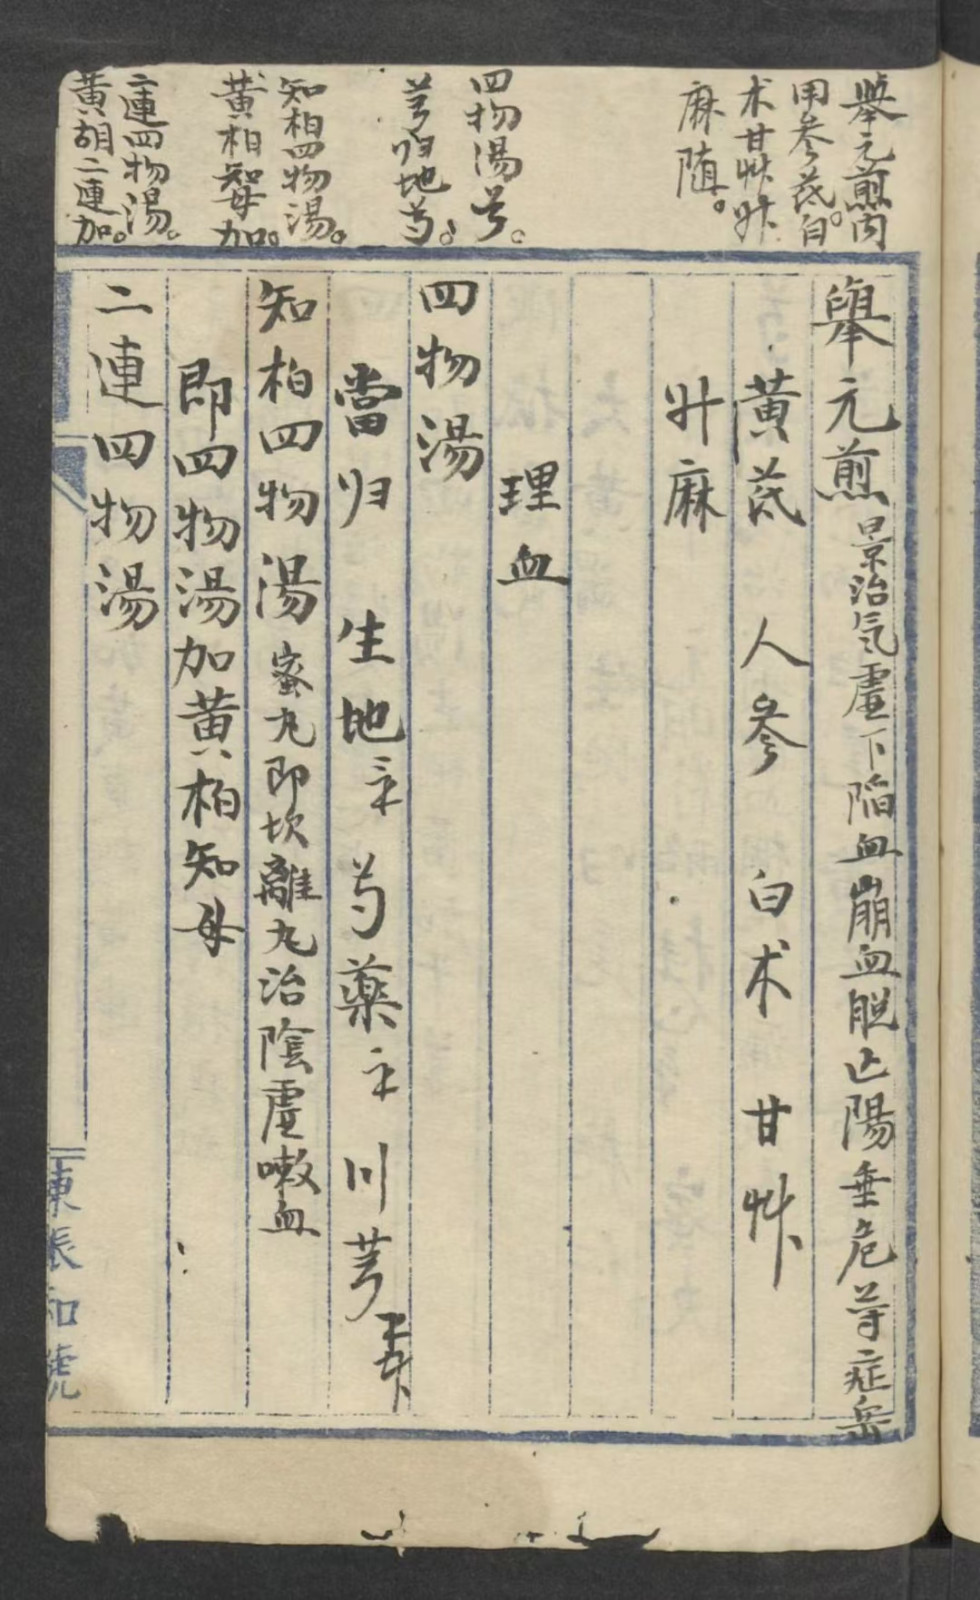 舉元煎内
用参芪。白
朮甘艸升
麻随。
四物湯兮。
芎归地芍。
知柏四物湯。
黄柏知母加。
二連四物湯。
黄胡二連加。
舉元煎景治気虛下陥血崩血脱亡陽垂危等症岳
黄芪 人參 白朮 甘艸
升麻
理血
四物湯
當归 生地 芍藥 川芎
知柏四物湯蜜丸即坎離丸治陰虛嗽血
即四物湯加黄柏知母
二連四物湯
東長和號